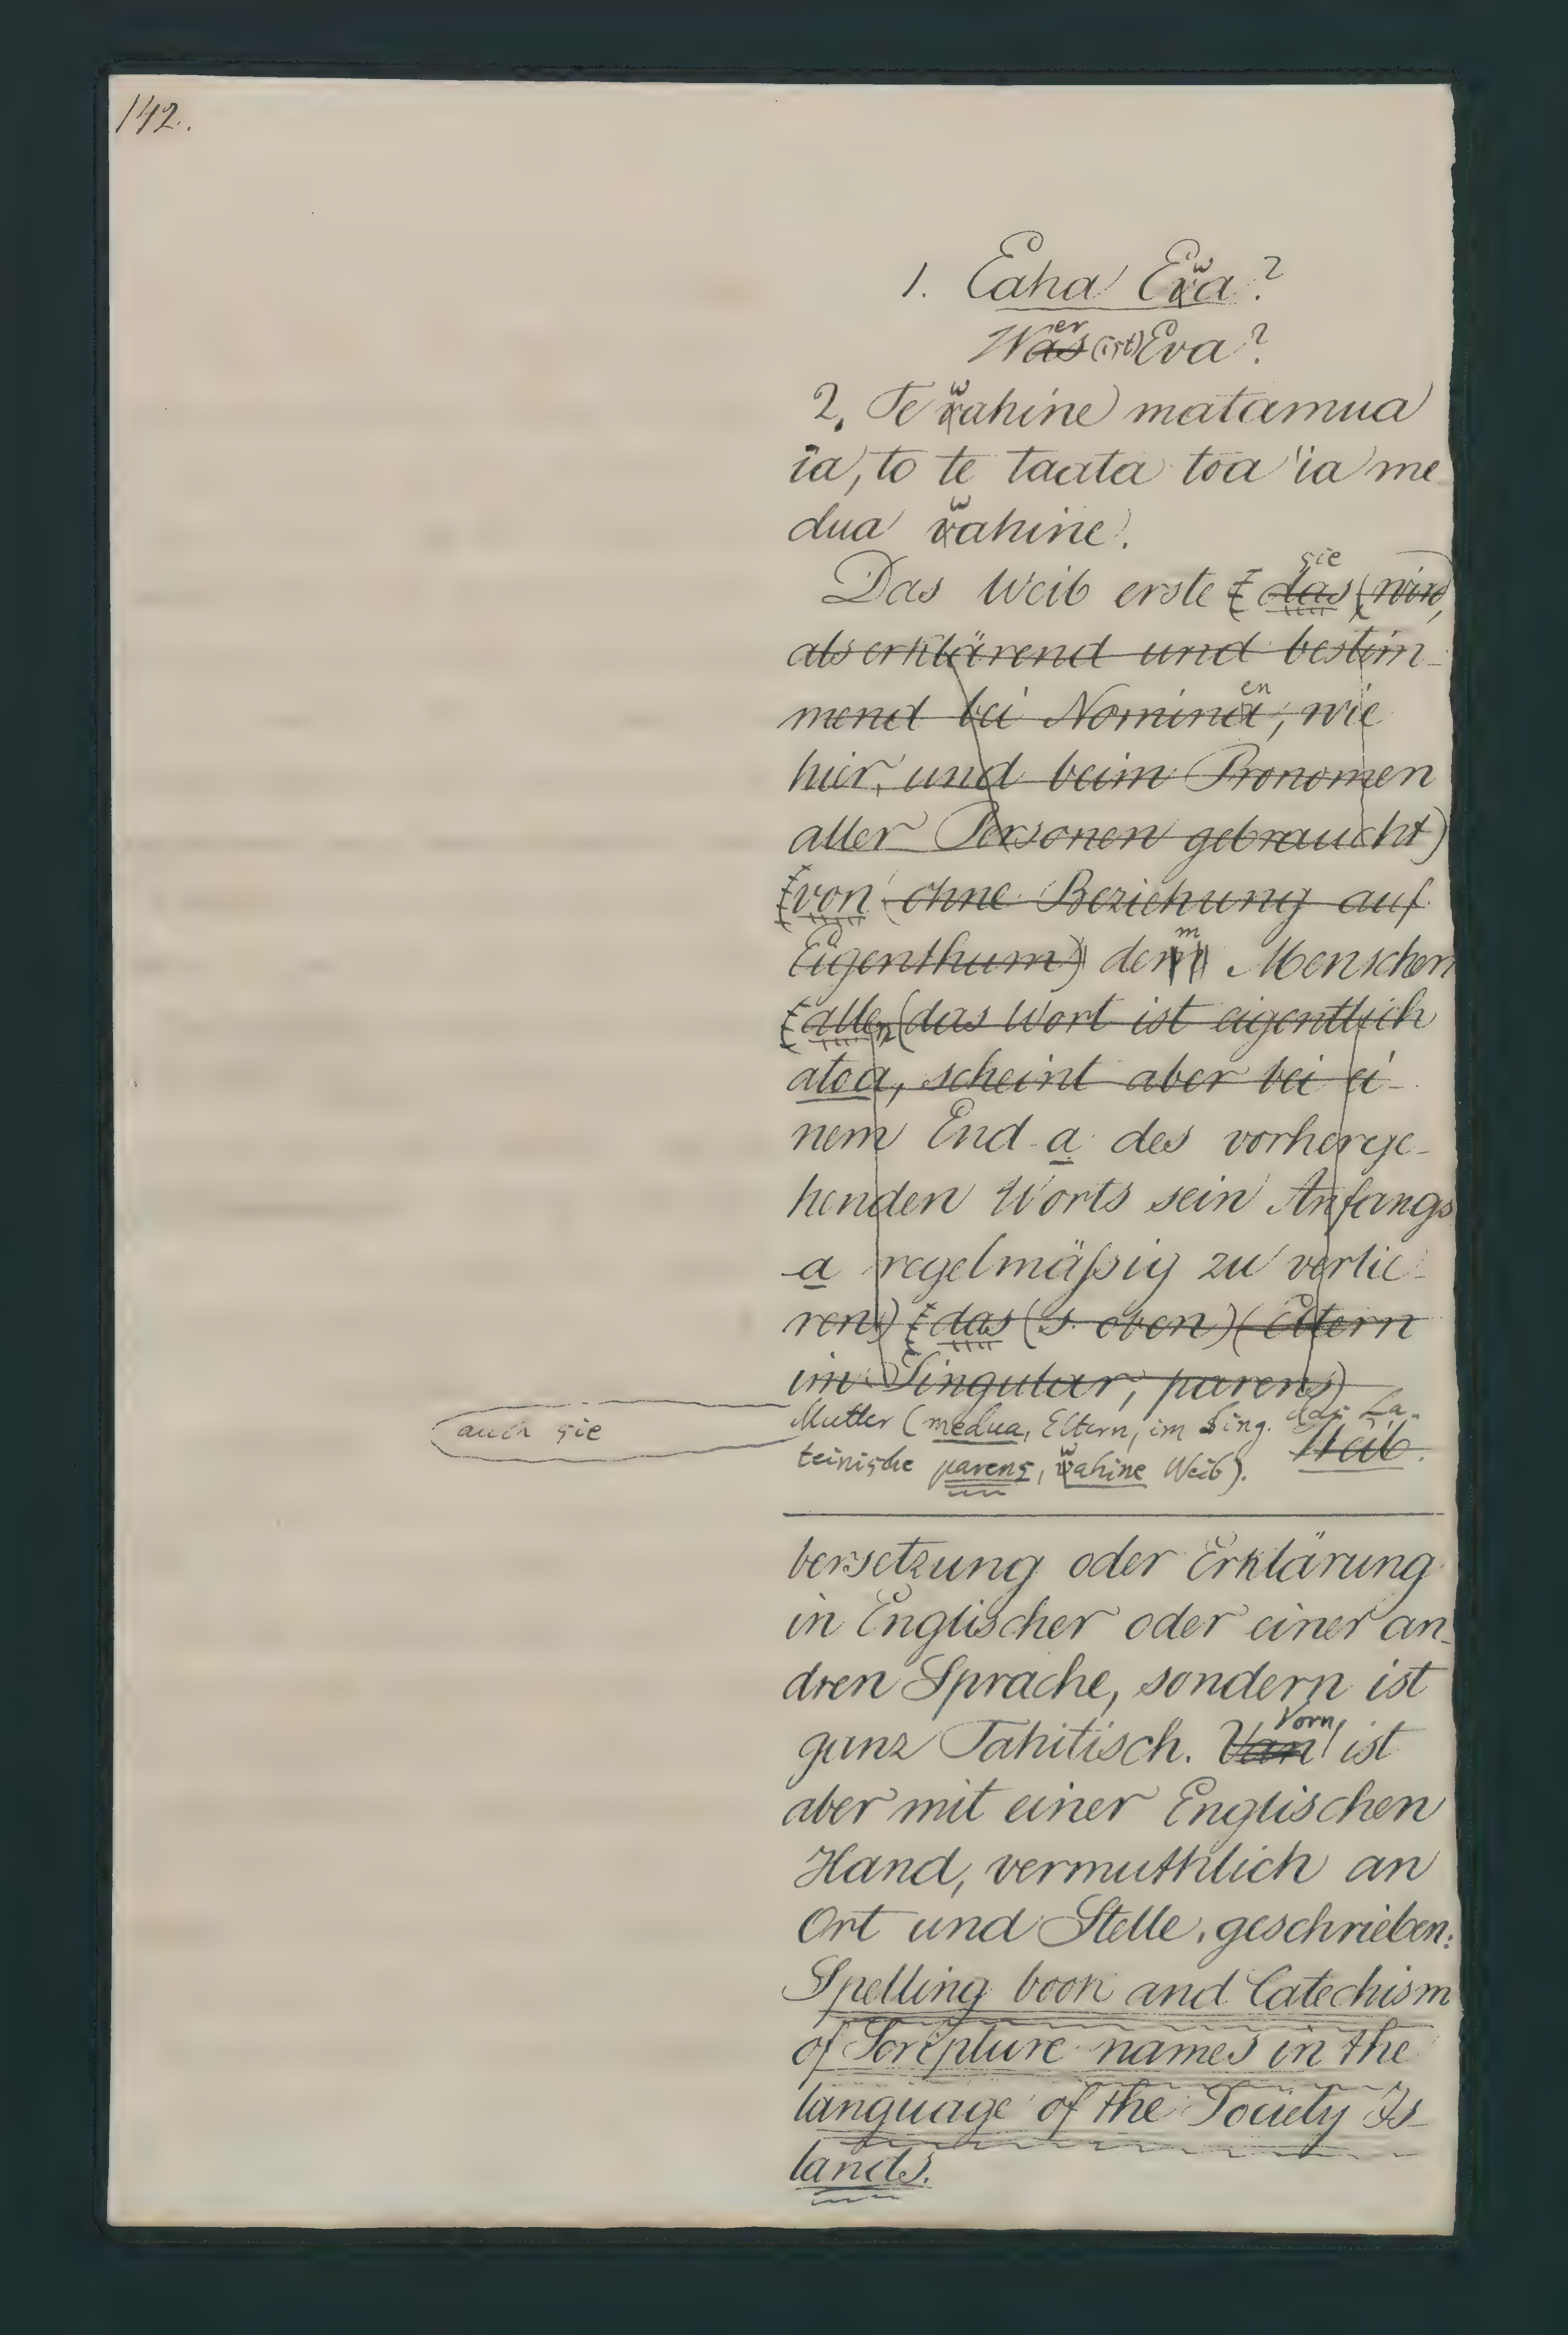 142.
1. Eaha Ewa?
Wer (ist) Eva?
2. Te wahine matamua
ia, to te taata toa ia me
dua wahine.
Das Weib erste sie das (wird,
als erklärend und bestim-
mend bei Nominaen, wie
hier, und beim Pronomen
aller Personen gebraucht)
von (ohne Beziehung auf
Eigenthum) dem Menschen
allen (das Wort ist eigentlich
atoa, scheint aber bei ei-
nem End a des vorherge-
henden Worts sein Anfangs
a regelmäßig zu verlie-
ren) das (s. oben) (Eltern
im Singular, parens)
auch sie
Mutter (medua, Eltern, im Sing. das La-
teinische parens, wahine Weib). Weib.
bersetzung oder Erklärung
in Englischer oder einer an-
dren Sprache, sondern ist
ganz Tahitisch. Vorn ist
aber mit einer Englischen
Hand, vermuthlich an
Ort und Stelle, geschrieben:
Spelling book and Catechism
of Scripture names in the
language of the Society Is-
lands.